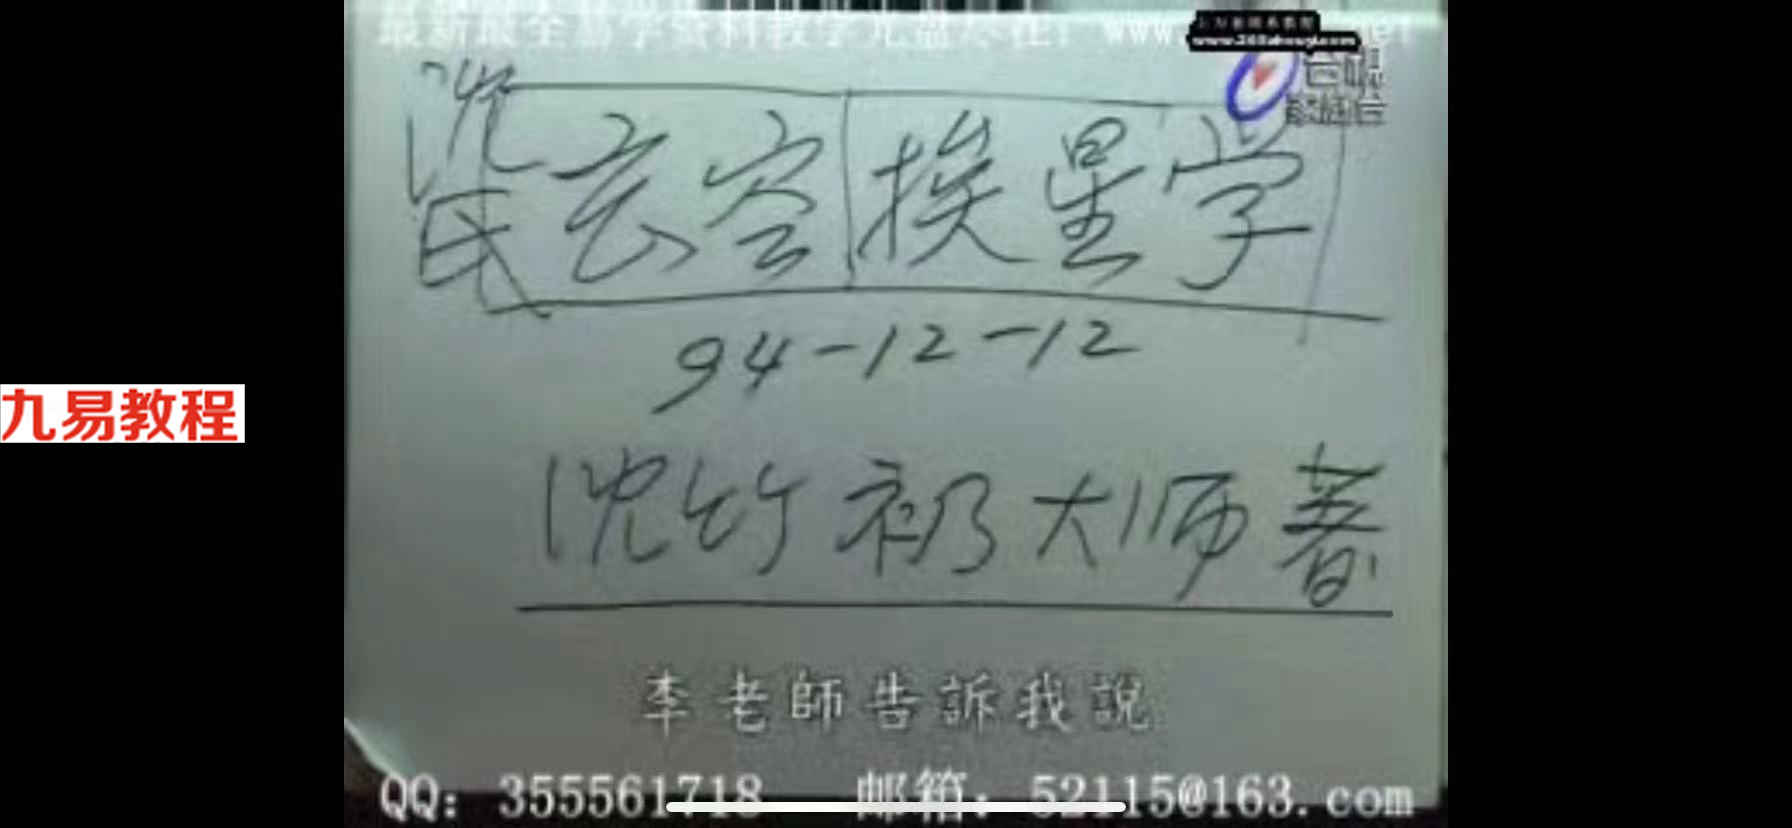 最新最全易学资料教学光盘尽在: www.
台視
沈氏玄空挨星学
94-12-12
沈竹礽大师著
九易教程
李老師告訴我說
QQ: 355561718 邮箱: 52115@163.com